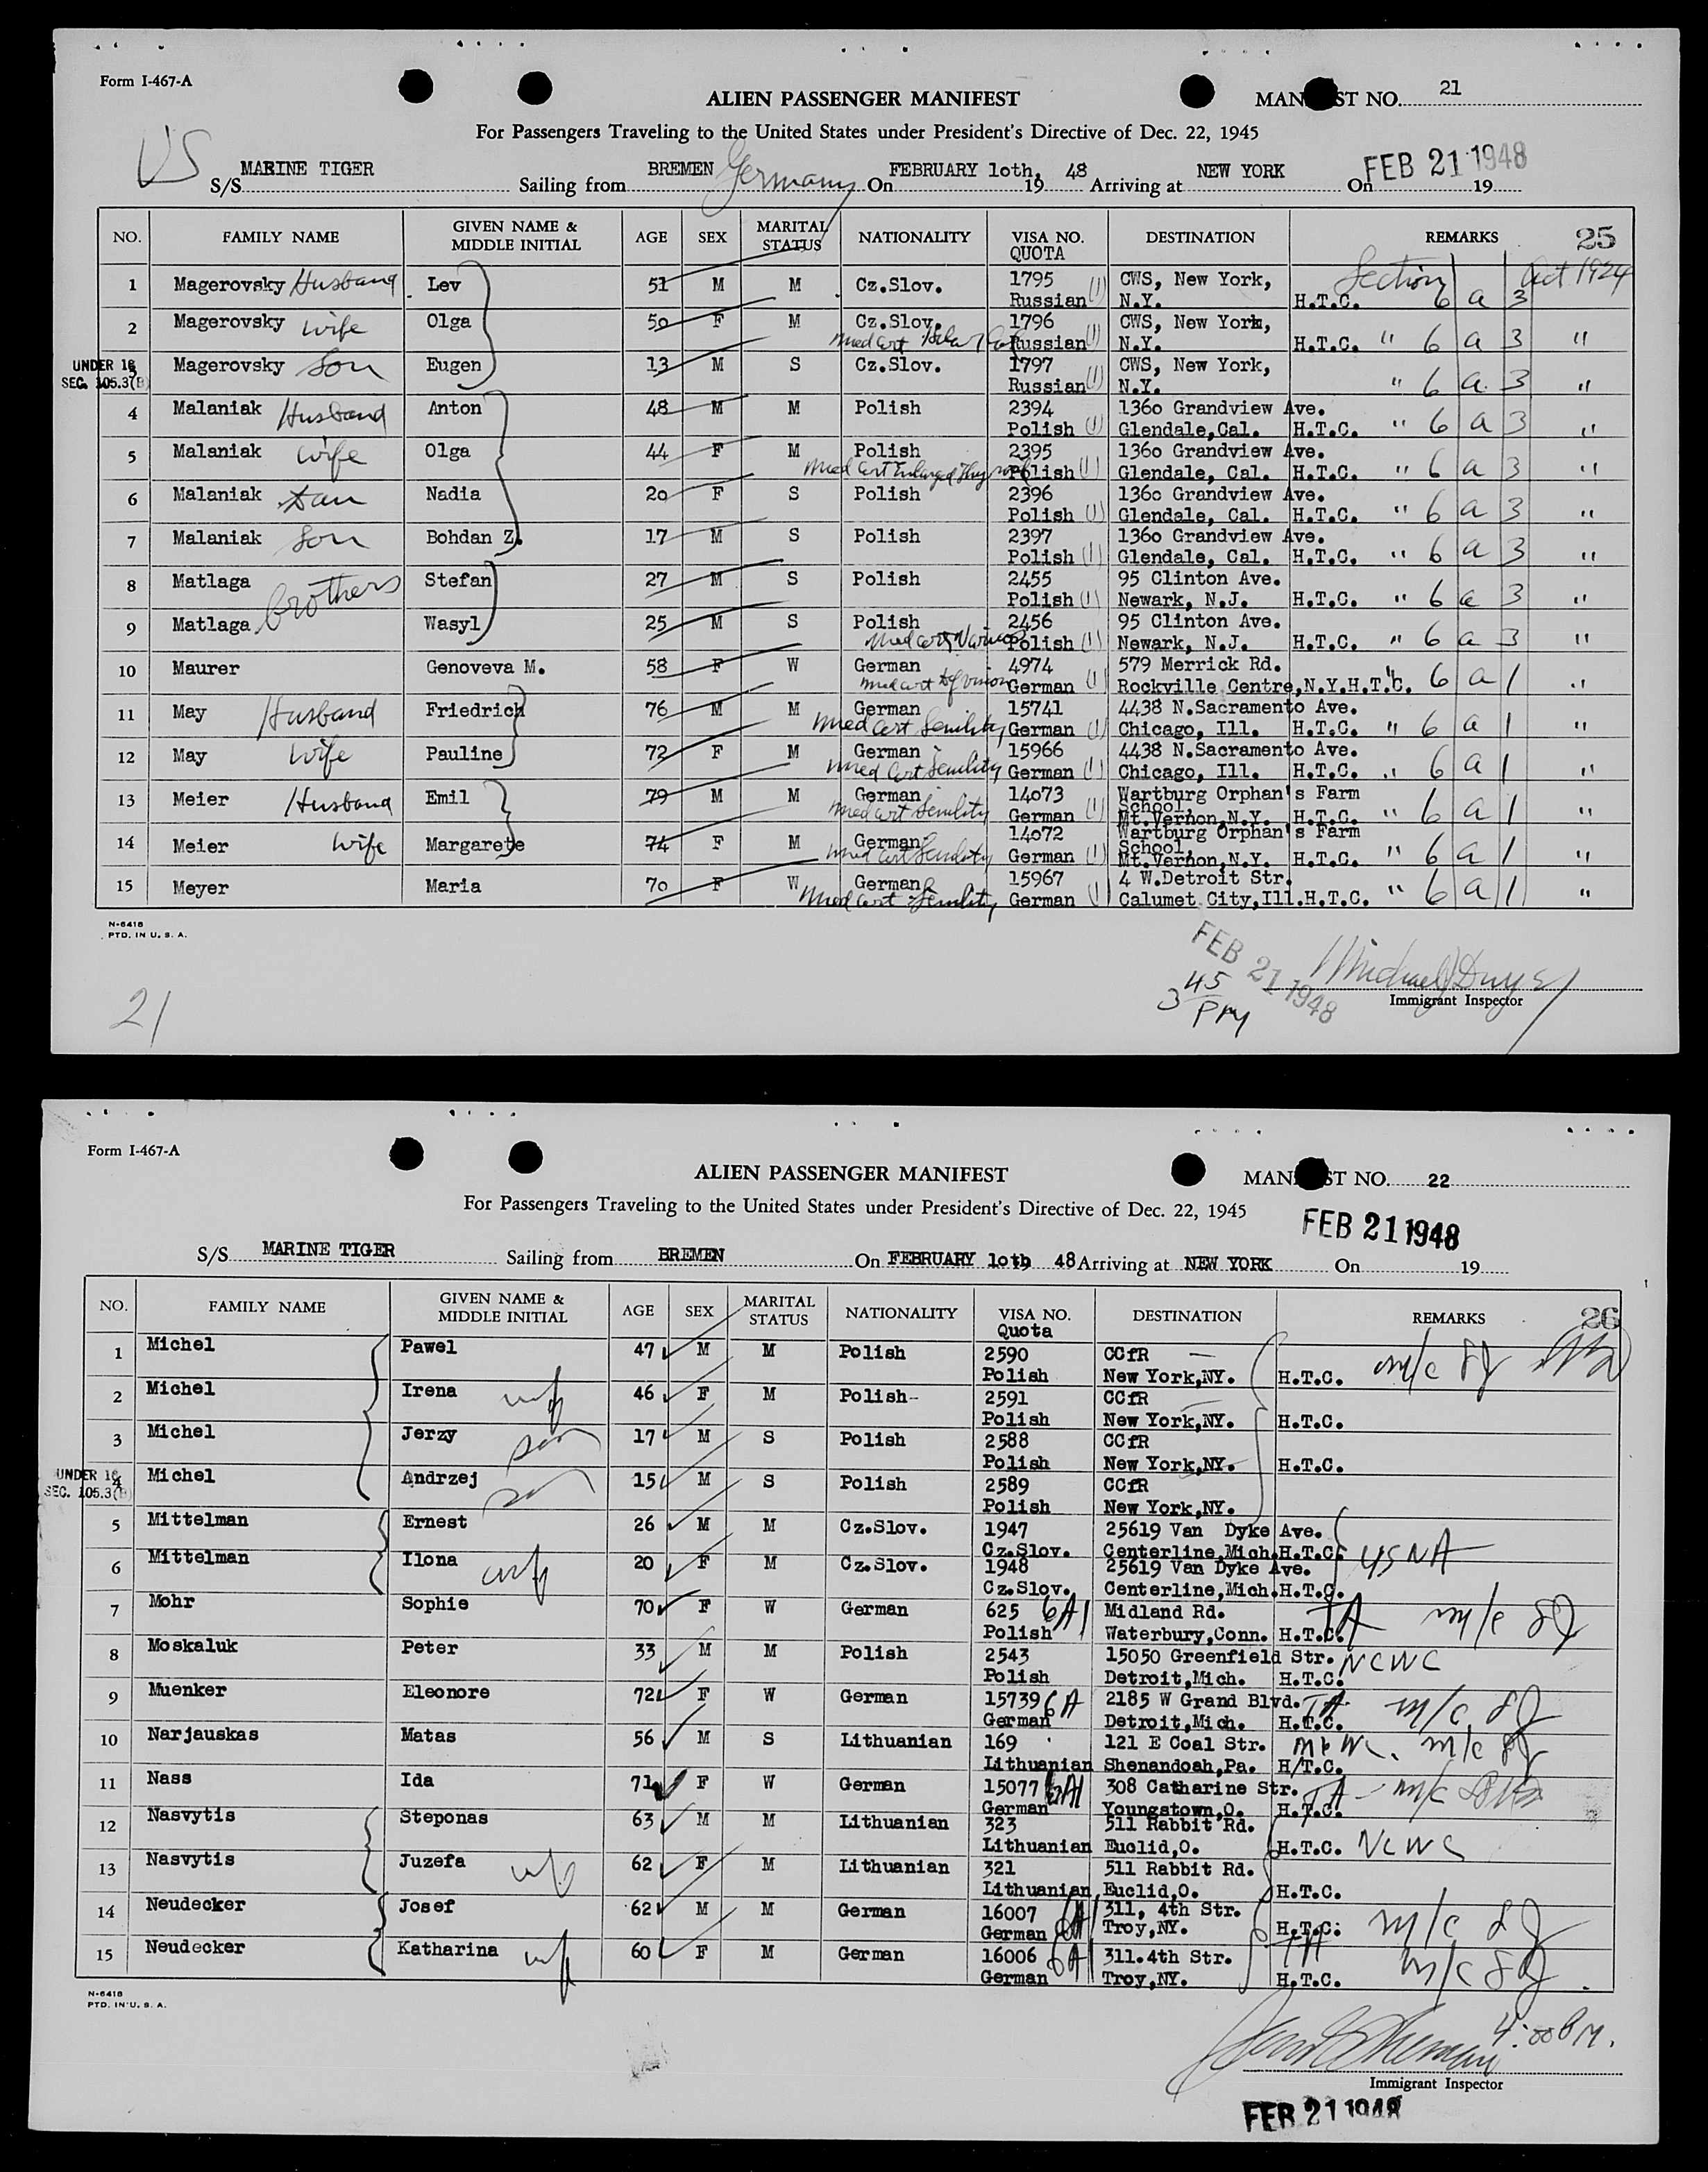 Form I-467-A
ALIEN PASSENGER MANIFEST
MAN ST NO. 21
For Passengers Traveling to the United States under President's Directive of Dec. 22, 1945
US
S/S MARINE TIGER Sailing from BREMEN Germany On FEBRUARY 1oth, 19 48 Arriving at NEW YORK On FEB 21 1948 19
NO. FAMILY NAME GIVEN NAME & MIDDLE INITIAL AGE SEX MARITAL STATUS NATIONALITY VISA NO. QUOTA DESTINATION REMARKS 25
Section Act 1924
1 Magerovsky Husband Lev 51 M M Cz.Slov. 1795 CWS, New York,
Russian (1) N.Y. H.T.C. 6 a 3
2 Magerovsky wife Olga 5o F M Cz.Slov. 1796 CWS, New York,
Med Cert Russian (1) N.Y. H.T.C. " 6 a 3 "
UNDER 16 SEC. 105.3(B)
3 Magerovsky Son Eugen 13 M S Cz.Slov. 1797 CWS, New York,
Russian (1) N.Y. " 6 a 3 "
4 Malaniak Husband Anton 48 M M Polish 2394 136o Grandview Ave.
Polish (1) Glendale,Cal. H.T.C. " 6 a 3 "
5 Malaniak wife Olga 44 F M Polish 2395 136o Grandview Ave.
Med Cert Enlarged Polish (1) Glendale, Cal. H.T.C. " 6 a 3 "
6 Malaniak Dau Nadia 2o F S Polish 2396 136o Grandview Ave.
Polish (1) Glendale, Cal. H.T.C. " 6 a 3 "
7 Malaniak Son Bohdan Z. 17 M S Polish 2397 136o Grandview Ave.
Polish (1) Glendale, Cal. H.T.C. " 6 a 3 "
8 Matlaga brothers Stefan 27 M S Polish 2455 95 Clinton Ave.
Polish (1) Newark, N.J. H.T.C. " 6 a 3 "
9 Matlaga Wasyl 25 M S Polish 2456 95 Clinton Ave.
Med Cert Polish (1) Newark, N.J. H.T.C. " 6 a 3 "
10 Maurer Genoveva M. 58 F W German 4974 579 Merrick Rd.
Med Cert Df vision German (1) Rockville Centre,N.Y.H.T.C. " 6 a 1 "
11 May Husband Friedrich 76 M M German 15741 4438 N.Sacramento Ave.
Med Cert Senility German (1) Chicago, Ill. H.T.C. " 6 a 1 "
12 May wife Pauline 72 F M German 15966 4438 N.Sacramento Ave.
Med Cert Senility German (1) Chicago, Ill. H.T.C. " 6 a 1 "
13 Meier Husband Emil 79 M M German 14o73 Wartburg Orphan's Farm School,
Med Cert Senility German (1) Mt.Vernon,N.Y. H.T.C. " 6 a 1 "
14 Meier Wife Margarete 74 F M German 14o72 Wartburg Orphan's Farm School,
Med Cert Senility German (1) Mt.Vernon,N.Y. H.T.C. " 6 a 1 "
15 Meyer Maria 7o F W German 15967 4 W.Detroit Str.
Med Cert Senility German (1) Calumet City,Ill.H.T.C. " 6 a 1 "
N-6418
PTD. IN U. S. A.
FEB 21 1948
Immigrant Inspector
3 45 PM
21
Form I-467-A
ALIEN PASSENGER MANIFEST
MAN ST NO. 22
For Passengers Traveling to the United States under President's Directive of Dec. 22, 1945
FEB 21 1948
S/S MARINE TIGER Sailing from BREMEN On FEBRUARY 1oth 48 Arriving at NEW YORK On 19
NO. FAMILY NAME GIVEN NAME & MIDDLE INITIAL AGE SEX MARITAL STATUS NATIONALITY VISA NO. Quota DESTINATION REMARKS 26
1 Michel Pawel 47 M M Polish 2590 CCfR
Polish New York,NY. H.T.C. m/c
2 Michel Irena wf 46 F M Polish 2591 CCfR
Polish New York,NY. H.T.C.
3 Michel Jerzy son 17 M S Polish 2588 CCfR
Polish New York,NY. H.T.C.
UNDER 16 SEC. 105.3(B)
4 Michel Andrzej son 15 M S Polish 2589 CCfR
Polish New York,NY.
5 Mittelman Ernest 26 M M Cz.Slov. 1947 25619 Van Dyke Ave.
Cz.Slov. Centerline,Mich.H.T.C. USNA
6 Mittelman Ilona wf 20 F M Cz.Slov. 1948 25619 Van Dyke Ave.
Cz.Slov. Centerline,Mich.H.T.C.
7 Mohr Sophie 70 F W German 625 6A1 Midland Rd.
Polish Waterbury,Conn. H.T.C. m/c
8 Moskaluk Peter 33 M M Polish 2543 15050 Greenfield Str. NCWC
Polish Detroit,Mich. H.T.C.
9 Muenker Eleonore 72 F W German 15739 6A 2185 W Grand Blvd. m/c
German Detroit,Mich. H.T.C.
10 Narjauskas Matas 56 M S Lithuanian 169 121 E Coal Str. m/c
Lithuanian Shenandoah,Pa. H/T.C.
11 Nass Ida 71 F W German 15077 6A1 308 Catharine Str. m/c
German Youngstown,O. H.T.C.
12 Nasvytis Steponas 63 M M Lithuanian 323 511 Rabbit Rd.
Lithuanian Euclid,O. H.T.C. NCWC
13 Nasvytis Juzefa wf 62 F M Lithuanian 321 511 Rabbit Rd.
Lithuanian Euclid,O. H.T.C.
14 Neudecker Josef 62 M M German 16007 311, 4th Str.
German 6A1 Troy,NY. H.T.C. m/c
15 Neudecker Katharina wf 60 F M German 16006 6A1 311.4th Str.
German Troy,NY. H.T.C. m/c
N-6418
PTD. IN U. S. A.
4:00 PM.
Immigrant Inspector
FEB 21 1948